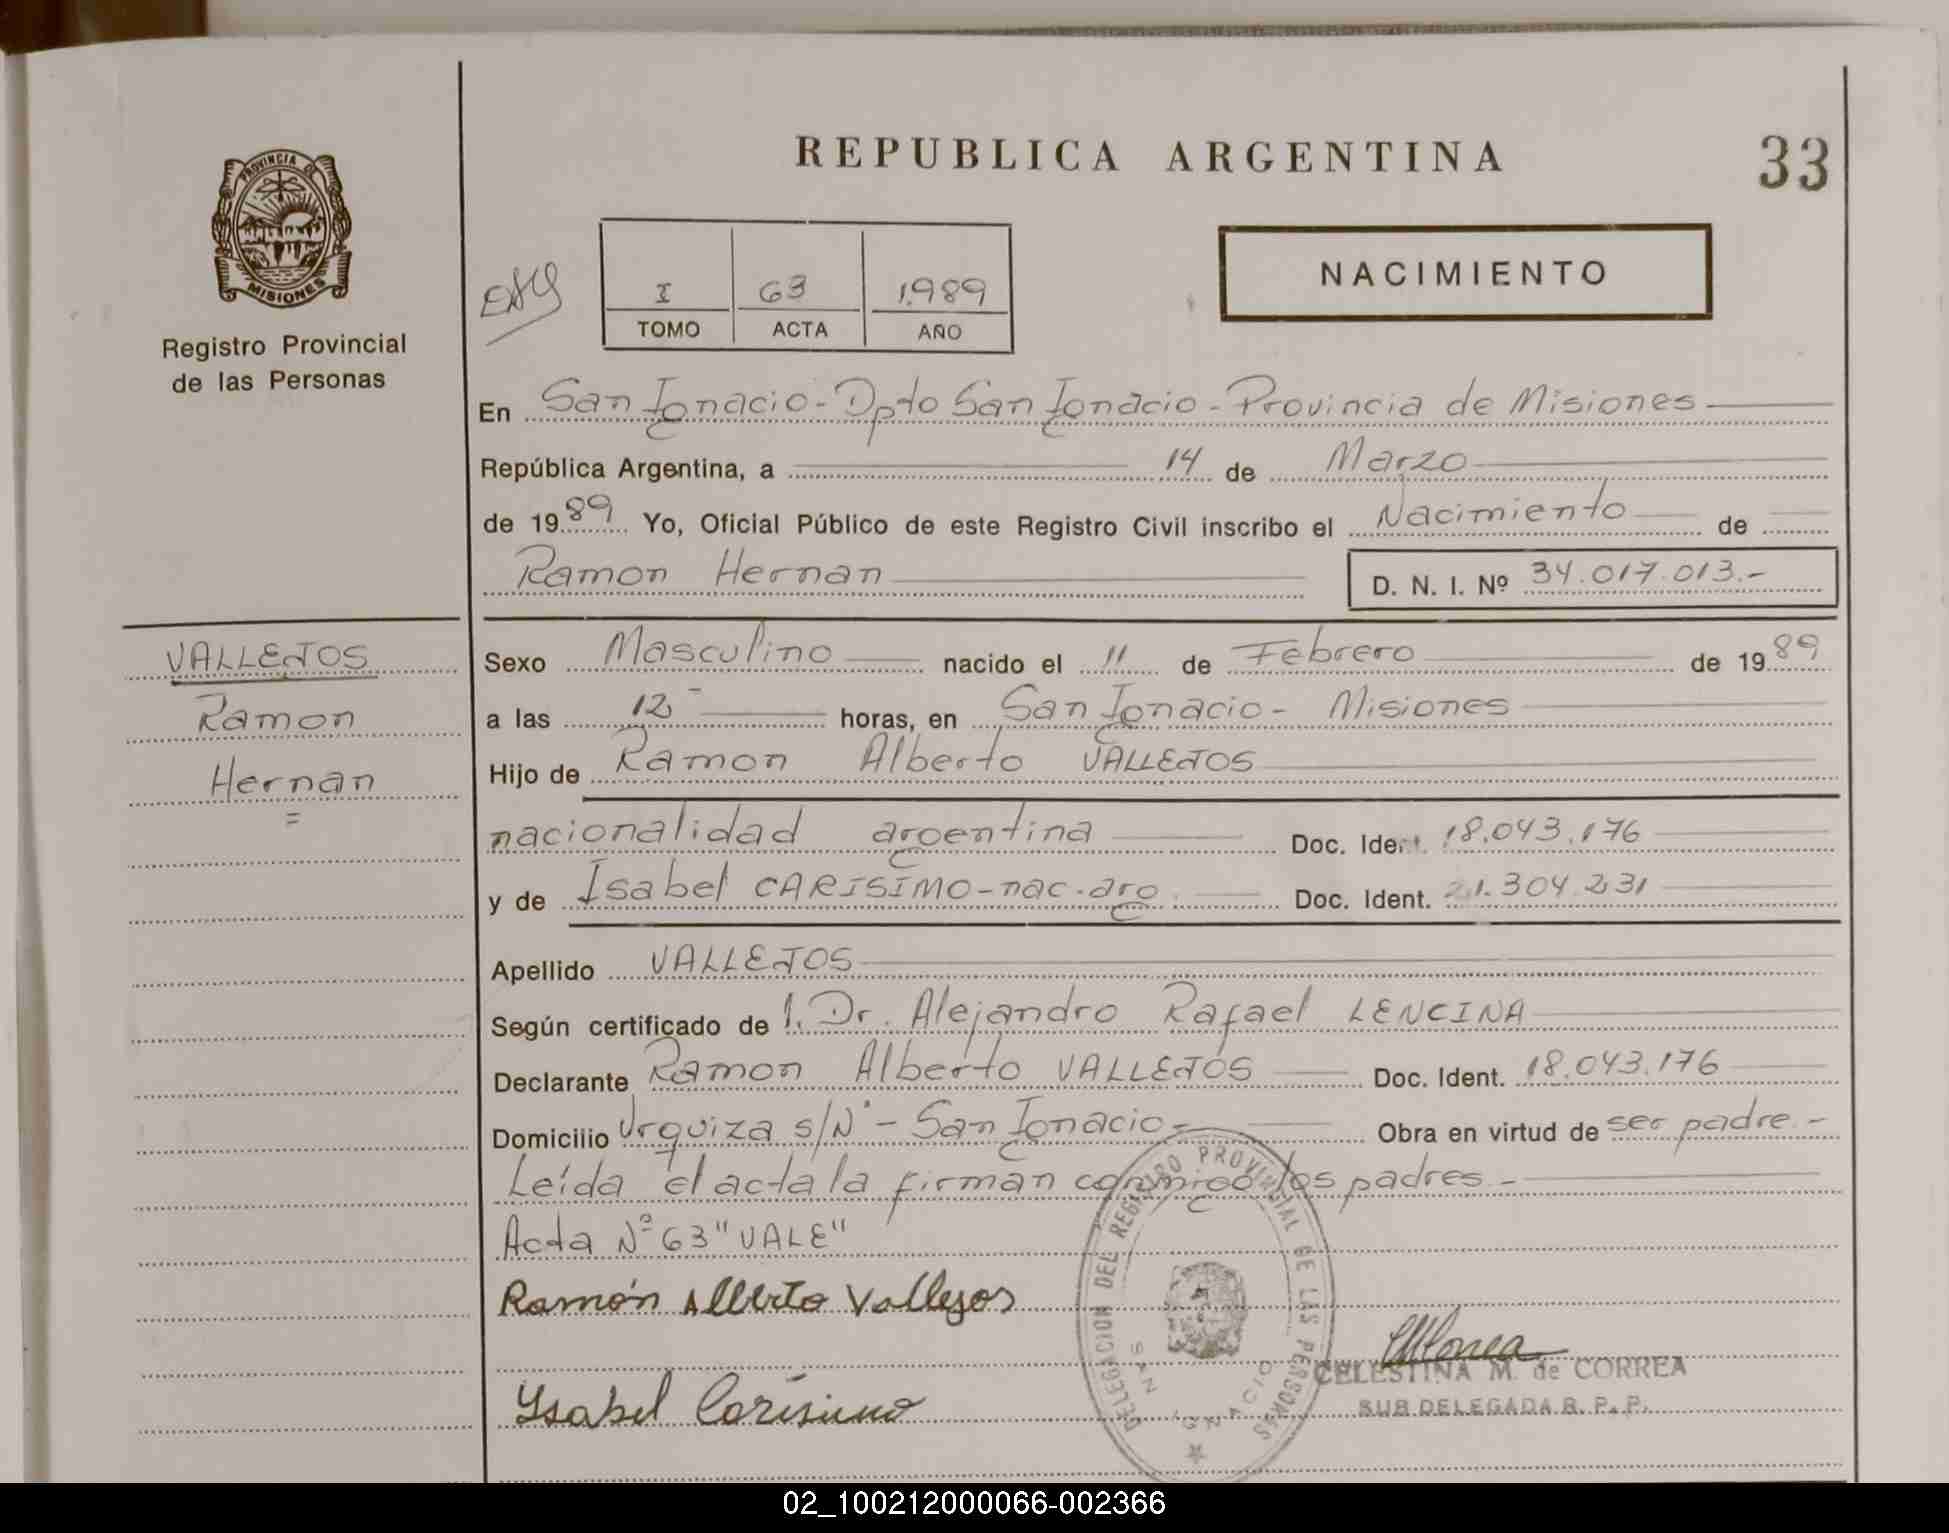 REPUBLICA ARGENTINA
33
PROVINCIA DE
MISIONES
Registro Provincial
de las Personas
I 63 1.989
TOMO ACTA AÑO
NACIMIENTO
En San Ignacio - Dpto San Ignacio - Provincia de Misiones
República Argentina, a 14 de Marzo
de 19 89 Yo, Oficial Público de este Registro Civil inscribo el Nacimiento de
Ramon Hernan D. N. I. Nº 34.017.013.-
VALLEJOS
Ramon
Hernan
=
Sexo Masculino nacido el 11 de Febrero de 19 89
a las 12 horas, en San Ignacio - Misiones
Hijo de Ramon Alberto VALLEJOS
nacionalidad argentina Doc. Ident. 18.043.176
y de Isabel CARISIMO - nac. arg. Doc. Ident. 21.304.231
Apellido VALLEJOS
Según certificado de l. Dr. Alejandro Rafael LENCINA
Declarante Ramon Alberto VALLEJOS Doc. Ident. 18.043.176
Domicilio Urquiza s/Nº - San Ignacio - Obra en virtud de ser padre.-
Leída el acta la firman conmigo los padres.-
Acta Nº 63 "VALE"
Ramón Alberto Vallejos
Ysabel Carísimo
DELEGACION DEL REGISTRO PROVINCIAL DE LAS PERSONAS
SAN IGNACIO
CELESTINA M. de CORREA
SUB DELEGADA R. P. P.
02_100212000066-002366